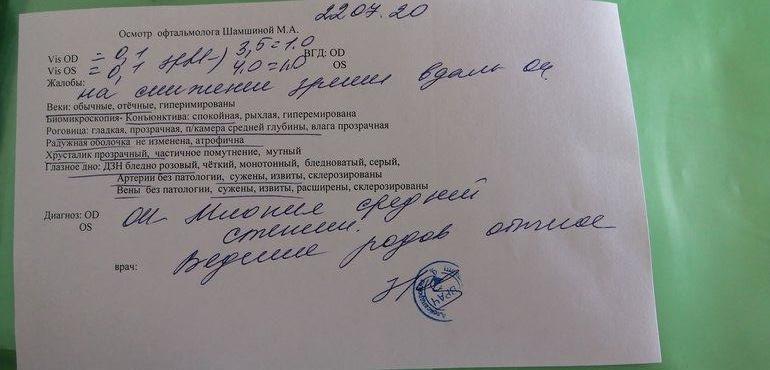 22 07. 20
Осмотр офтальмолога Шамшиной М.А.
Vis OD = 0,1 sph (-) 3,5 = 1.0 ВГД: OD
Vis OS = 0,1 4.0 = 1.0 OS
Жалобы: на снижение зрения вдаль ou
Веки: обычные, отёчные, гиперимированы
Биомикроскопия- Конъюнктива: спокойная, рыхлая, гиперемирована
Роговица: гладкая, прозрачная, п/камера средней глубины, влага прозрачная
Радужная оболочка не изменена, атрофична
Хрусталик прозрачный, частичное помутнение, мутный
Глазное дно: ДЗН бледно розовый, чёткий, монотонный, бледноватый, серый,
Артерии без патологии, сужены, извиты, склерозированы
Вены без патологии, сужены, извиты, расширены, склерозированы
Диагноз: OD ou Миопия средней
OS степени.
Ведение родов
врач:
ВРАЧ